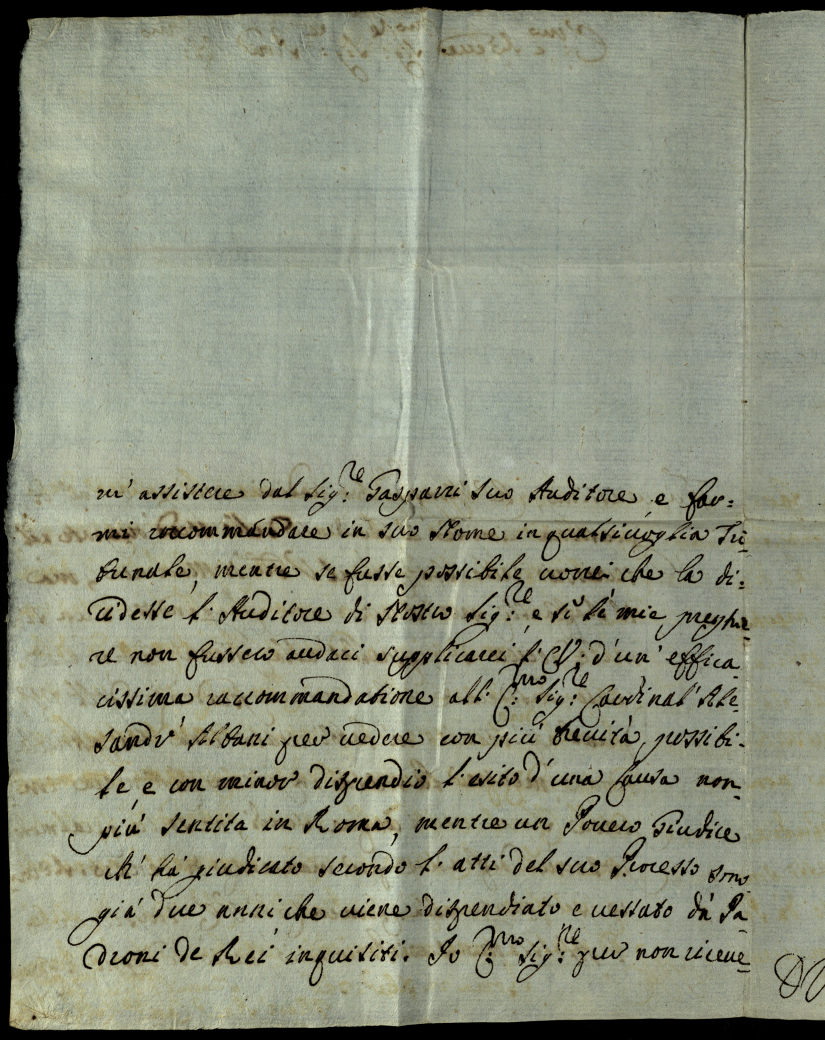 m' assistere dal Sig:re Gasparri suo Auditore, e far=
mi raccommandare in suo Nome in qualsivoglia Tri=
bunale, mentre se fusse possibile vorrei che la di=
videsse l'Auditore di Nostro Sig:re, e si le mie preghie=
re non fussero audaci supplicarei l'E.V. d'un' effica
cissima raccommandatione all' E:mo Sig:re Cardinal' Ale=
sandr' Albani per vedere con più brevità possibi=
le, e con minor dispendio l'esito d'una Causa non
più sentita in Roma, mentre un Povero Giudice
ch' hà giudicato secondo l'atti del suo Processo sono
già due anni che viene dispendiato e vessato dà Pa
droni de Rei inquisiti. Io E:mo Sig:re per non riceve=